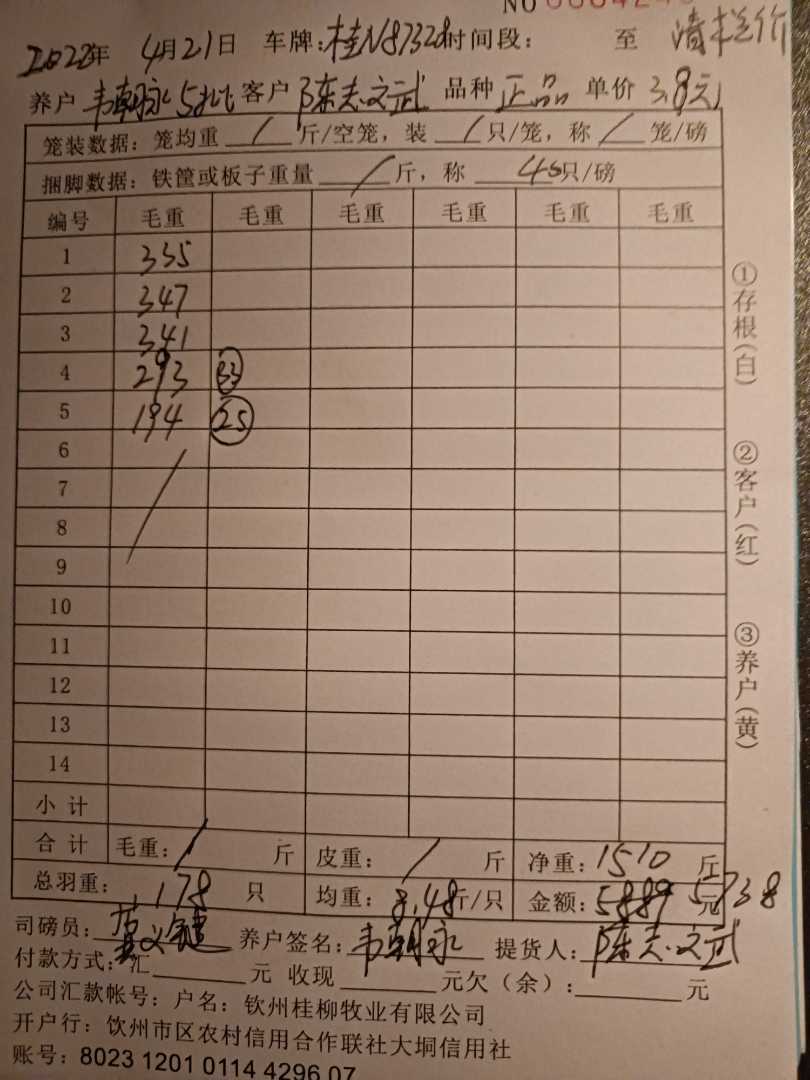 NO
2022年 4月21日 车牌:桂N87328 时间段: 至 清栏价
养户 韦朝永5批 客户 陈志文武 品种 正品 单价 3.8元
笼装数据:笼均重 / 斤/空笼,装 / 只/笼,称 / 笼/磅
捆脚数据:铁筐或板子重量 / 斤,称 40只/磅
编号 毛重 毛重 毛重 毛重 毛重 毛重
1 335
2 347
3 341
4 293 33
5 194 25
6
7
8
9
10
11
12
13
14
小计
合计 毛重: / 斤 皮重: / 斤 净重:1510 斤
总羽重: 178 只 均重:8.48斤/只 金额:5889元 5738
司磅员: 养户签名:韦朝永 提货人:陈志文武
付款方式:汇 元 收现 元欠(余): 元
公司汇款帐号:户名:钦州桂柳牧业有限公司
开户行:饮州市区农村信用合作联社大垌信用社
账号:8023 1201 0114 4296 07
①存根(白)
②客户(红)
③养户(黄)